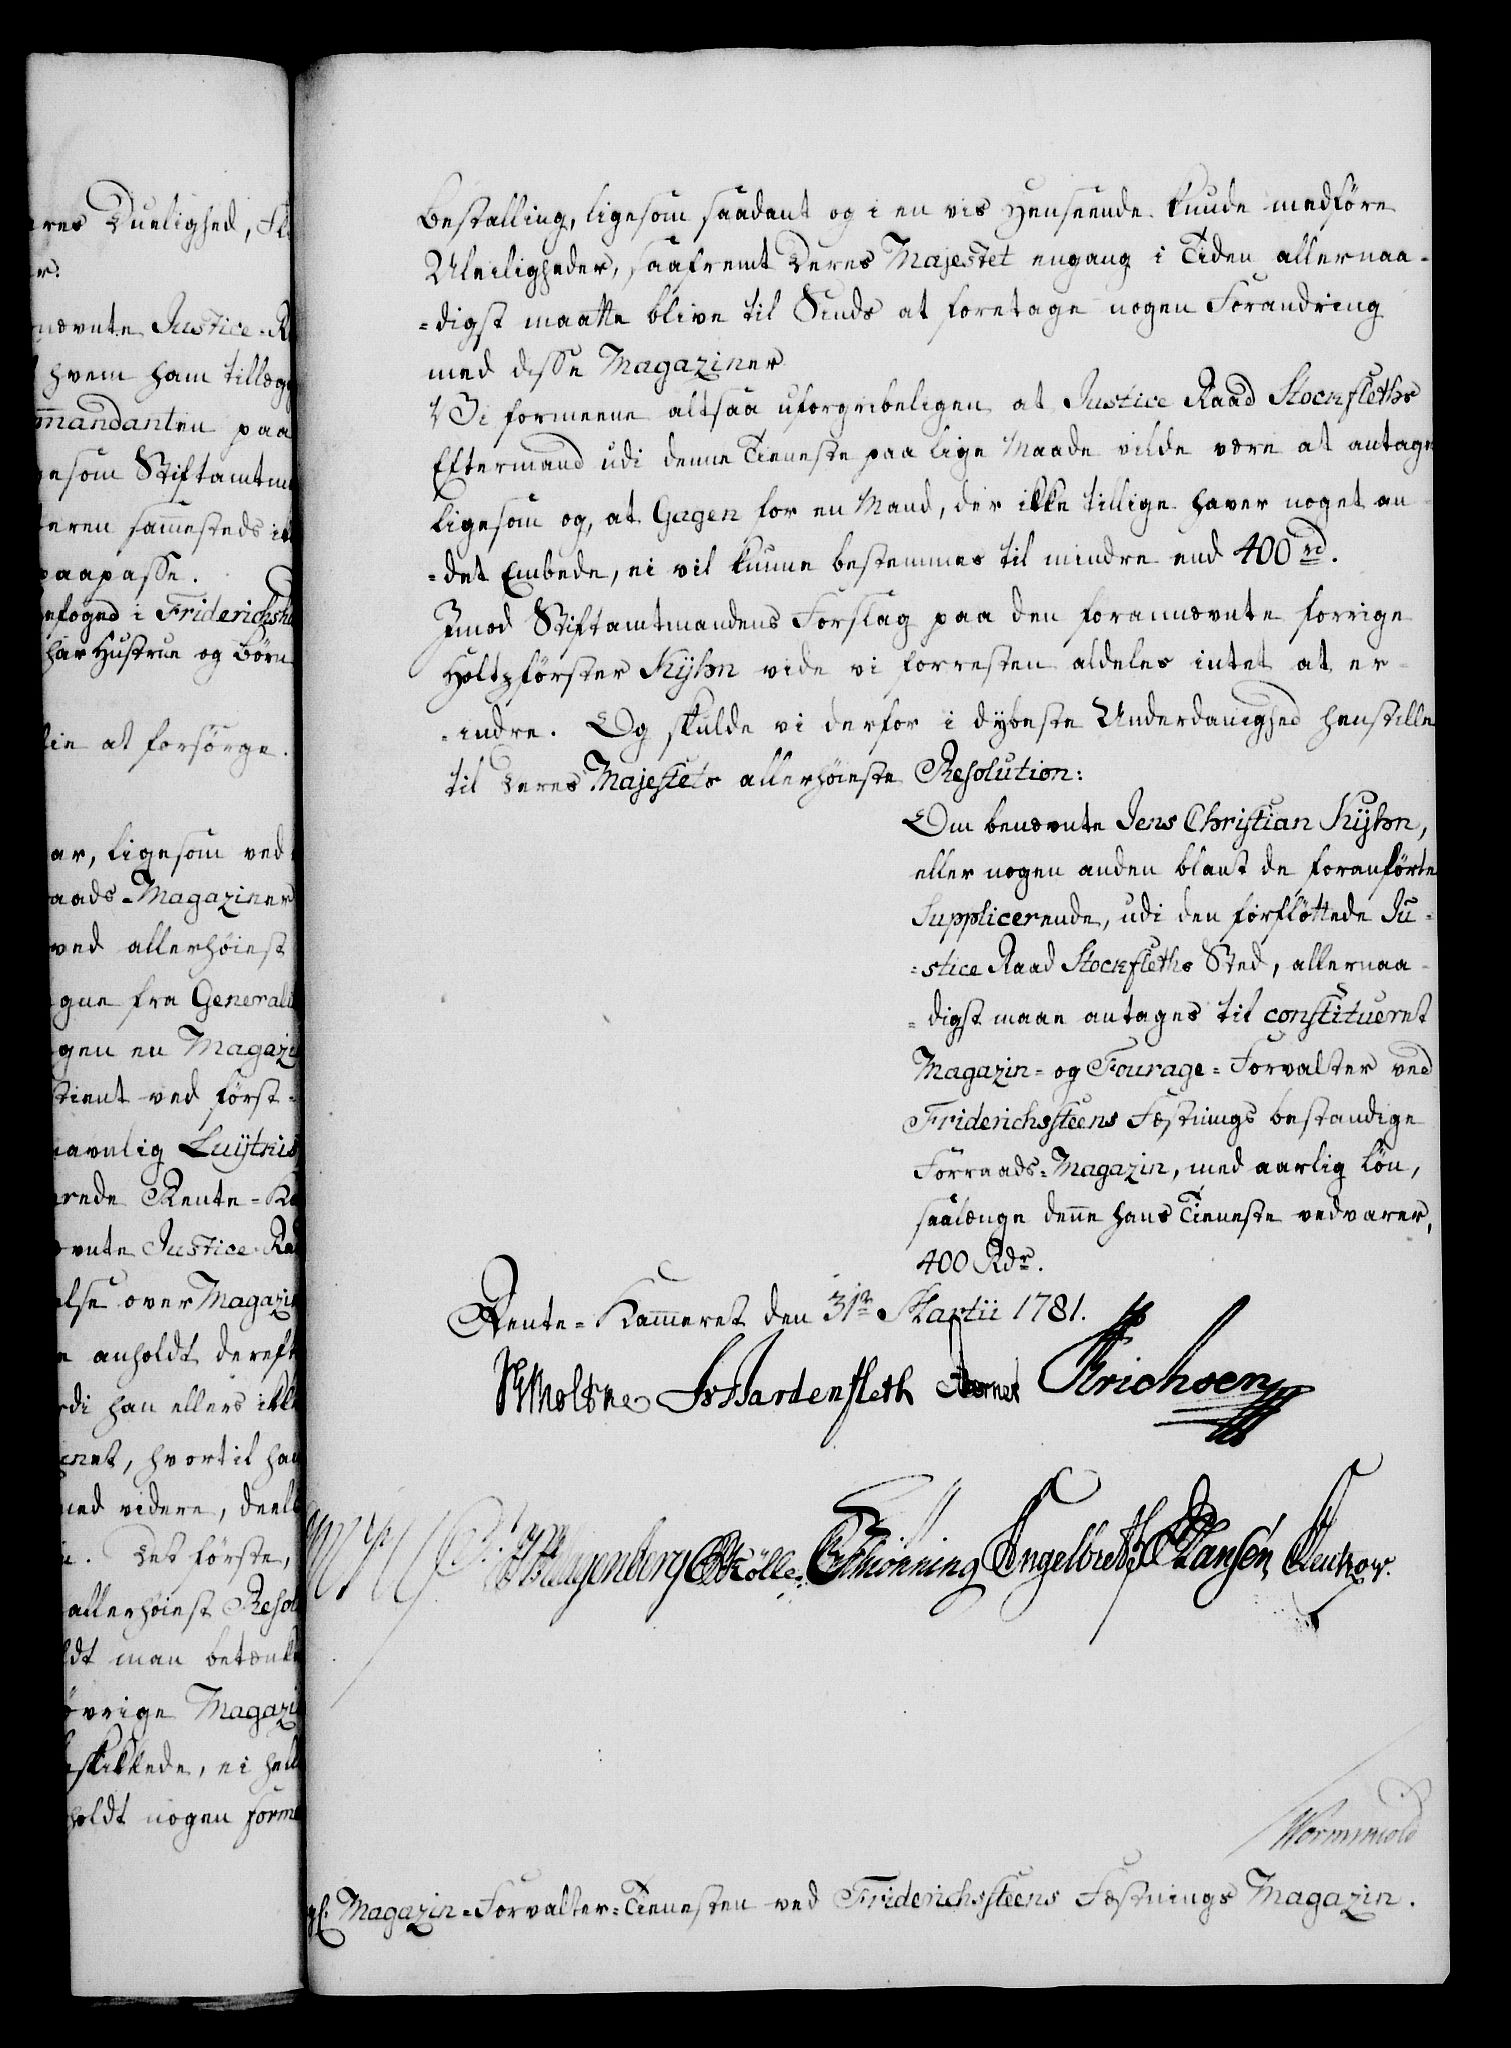 ares Duelighed, Fl
er.
nævnte Justice-R
hvem ham tillæg
mandanten paa
gesom Stiftamtm
teren sammesteds ik
paapasse.
efoged i Friderichsh
har Hustrue og Børn
lie at forsørge.
ar, ligesom ved
aads-Magaziner
ved allerhøiest
gne fra General
gen en Magazi
tient ved først-
navnlig Luytkis
rede Rente-Ka
vnte Justice-Ra
else over Magazi
e anholdt dereft
rdi han ellers ikk
enet, hvortil han
med videre, deel
Det første,
allerhøiest Resol
ldt man betænk
øvrige Magazi
eskikkede, ei hell
holdt nogen form
Bestalling, ligesom saadant og i en vis Henseende kunde medføre
Uleiligheder, saafremt Deres Majestet engang i Tiden allernaa-
=digst maatte blive til Sinds at foretage nogen Forandring
med disse Magaziner
Vi formeene altsaa uforgribeligen at Justice Raad Stockfleths
Eftermand udi denne Tieneste paa lige Maade vilde være at antage
ligesom og, at Gagen for en Mand, der ikke tillige haver noget an-
=det Embede, ei vil kunne bestemmes til mindre end 400 rd.
Imod Stiftamtmandens Forslag paa den forannævnte forrige
Holtzførster Kyhn vide vi forresten aldeles intet at er-
=indre. Og skulde vi derfor i dybeste Underdanighed henstille
til Deres Majestets allerhøieste Resolution:
Om benævnte Jens Christian Kyhn,
eller nogen anden blant de foranførte
Supplicerende, udi den forfløttede Ju-
=stice Raad Stockfleths Sted, allernaa-
=digst maae antages til constitueret
Magazin- og Fourage-Forvalter ved
Friderichssteens Fæstnings bestandige
Forraads-Magazin, med aarlig Løn,
saalænge denne hans Tieneste vedvarer,
400 Rdr.
Rente-Kammeret den 31te Martii 1781.
Moltke J Hardenfleth Erichsen
Wagenberg Kølle Schiønning Engelbreth Hansen
Wormskiold
Magazin-Forvalter-Tienesten ved Friderichssteens Fæstnings Magazin.